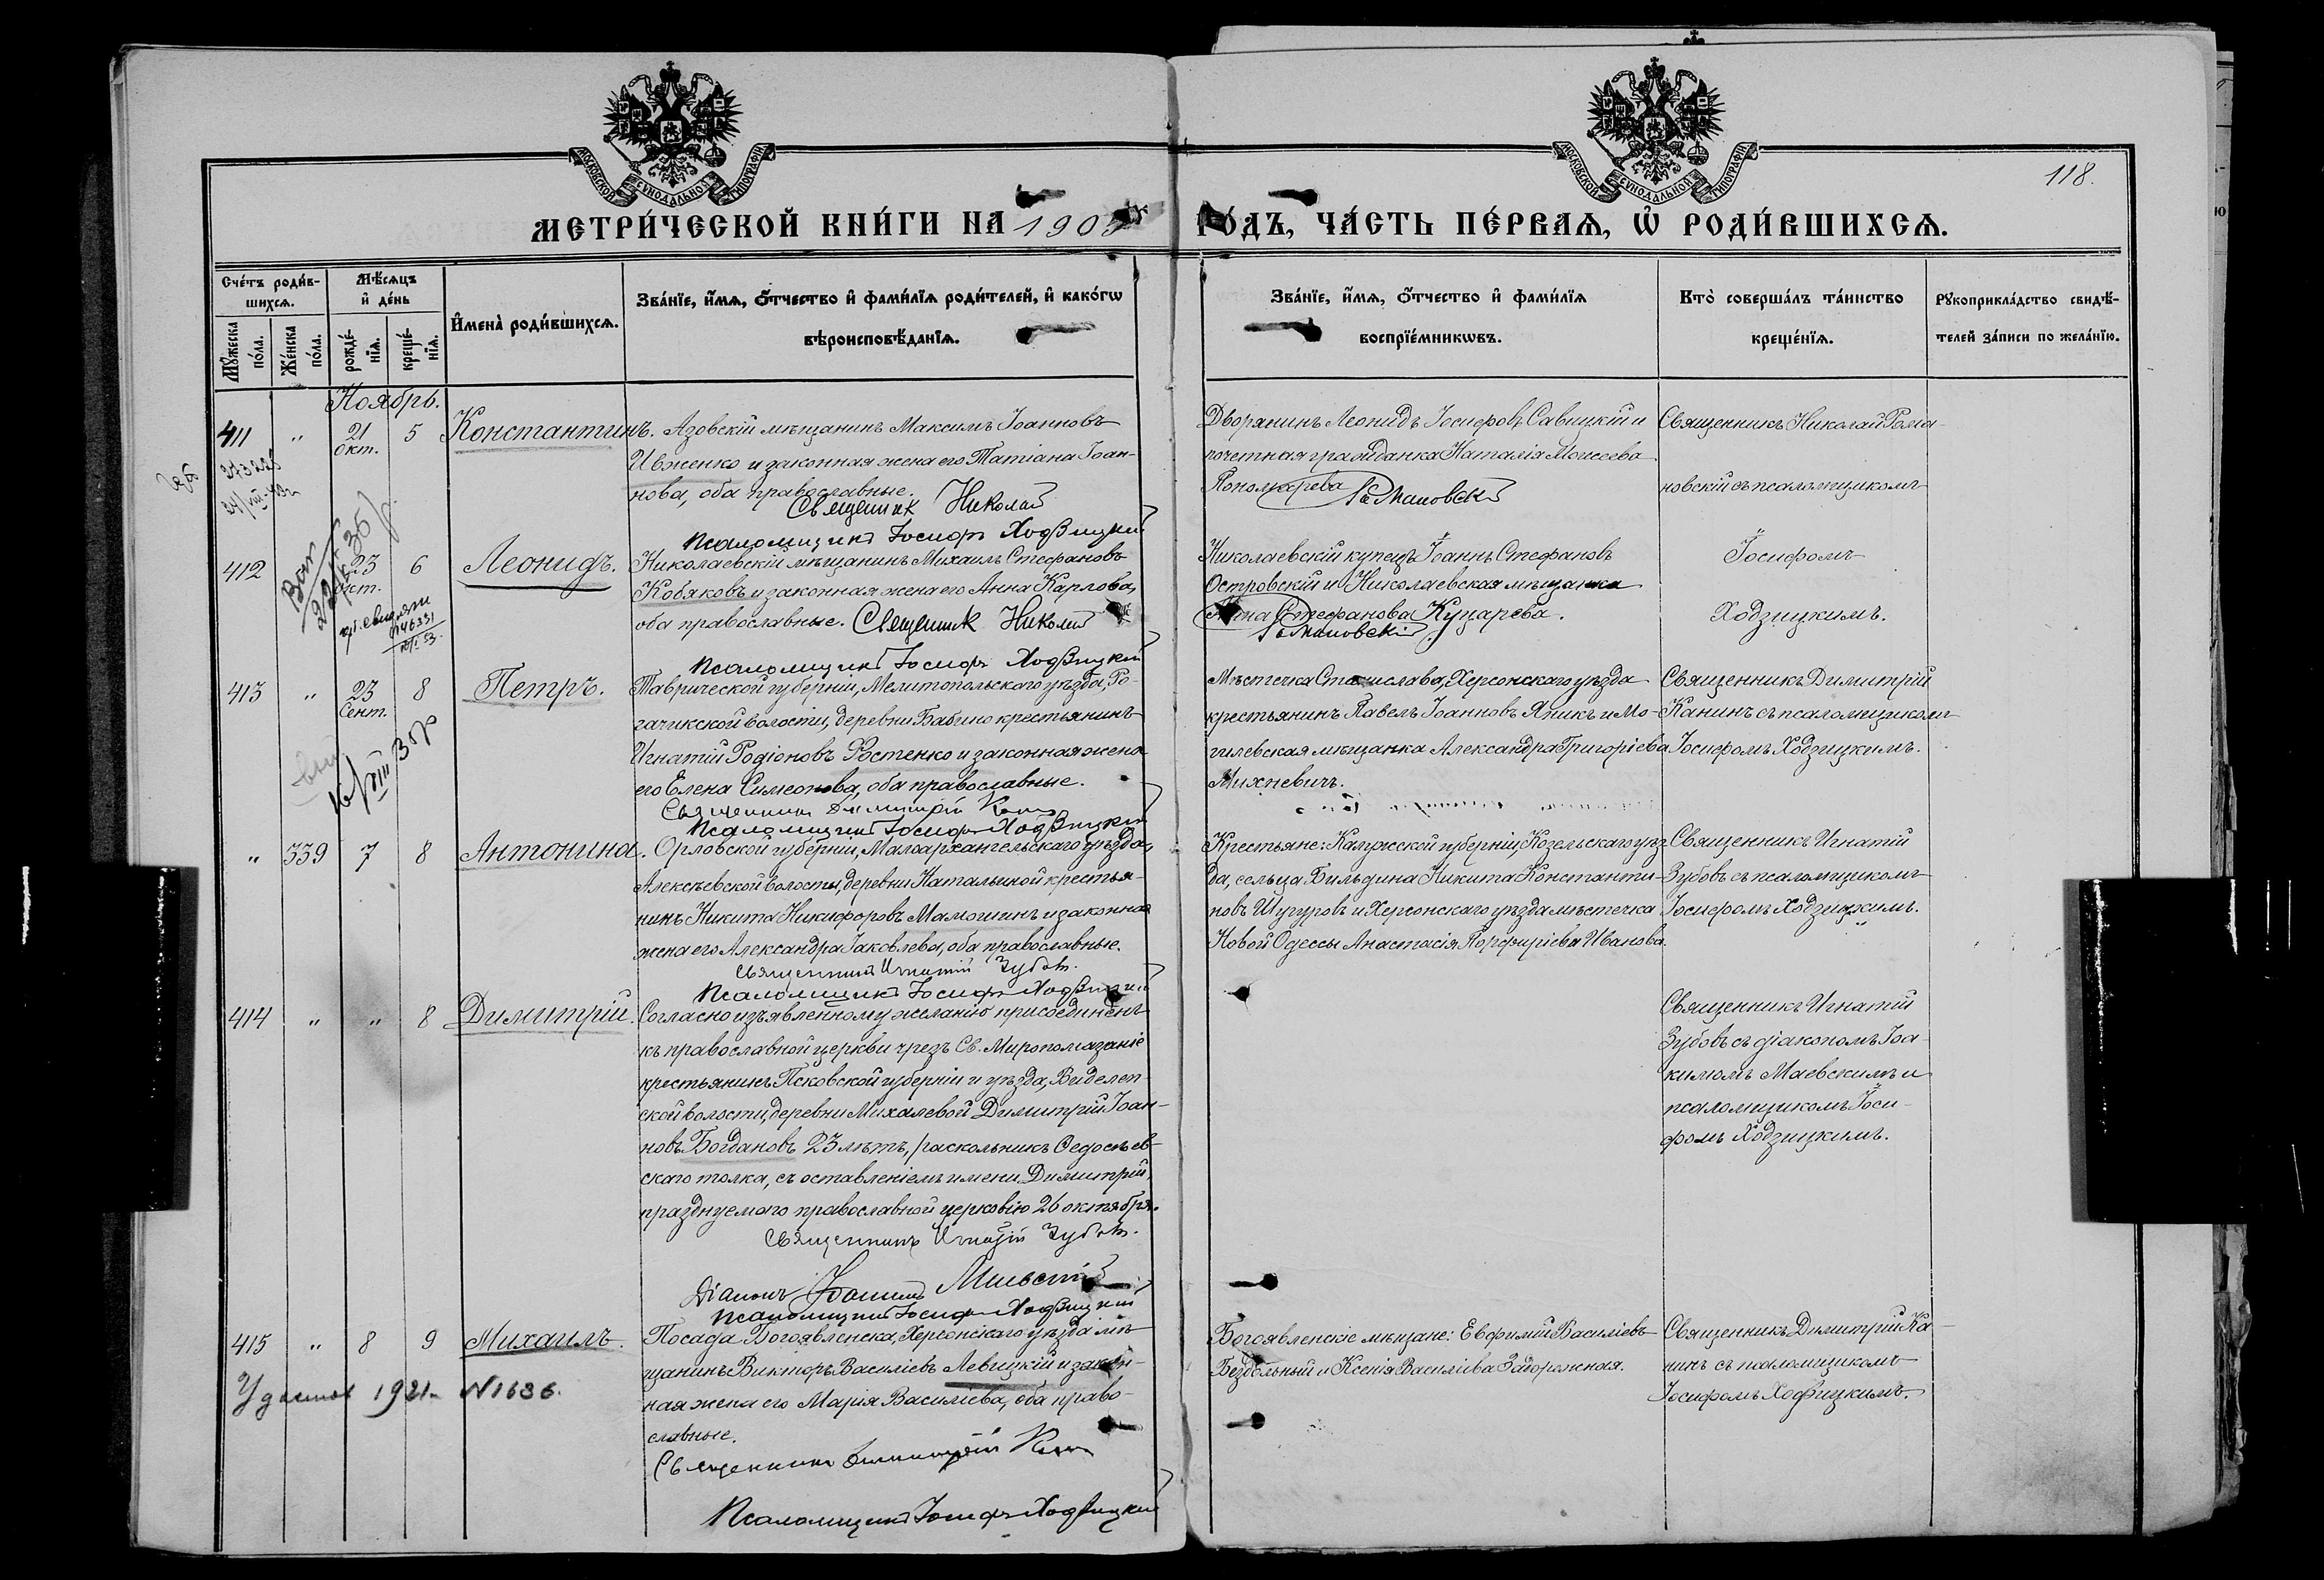 МОСКОВСКОЙ СѴНОДАЛЬНОЙ ТИПОГРАФІИ
МОСКОВСКОЙ СѴНОДАЛЬНОЙ ТИПОГРАФІИ
118.
МЕТРИ́ЧЕСКОЙ КНИ́ГИ НА 190
ГО́ДЪ, ЧА́СТЬ ПЕ́РВАѦ, Ѡ҆ РОДИ́ВШИХСѦ.
Сче́тъ роди́в-
шихсѧ.
Мꙋ́жеска по́ла.
Же́нска по́ла.
Мѣ́сѧцъ
и҆ де́нь
рожде́-
нїѧ.
креще́-
нїѧ.
И҆мена̀ роди́вшихсѧ.
Зва́нїе, и҆́мѧ, ѻ҆́тчество и҆ фами́лїѧ роди́телей, и҆ како́гѡ
вѣроисповѣ́данїѧ.
Зва́нїе, и҆́мѧ, ѻ҆́тчество и҆ фами́лїѧ
воспрїе́мникѡвъ.
Кто̀ соверша́лъ та́инство
креще́нїѧ.
Рꙋкоприкла́дство свидѣ́-
телей за́писи по жела́нїю.
Ноябрь.
411 " 21 Окт. 5 Константинъ.
Азовскій мѣщанинъ Максимъ Іоанновъ
Ивженко и законная жена его Татіана Іоан-
нова, оба православные.
Священник Николай
Романовскій
Псаломщикъ Іосифъ Ходзицкій
Дворянинъ Леонидъ Іосифовъ Савицкій и
почетная гражданка Наталія Моисеева
Пономарева
Священникъ Николай Рома-
новскій съ псаломщикомъ
Іосифомъ
Ходзицкимъ.
412 23 Окт. 6 Леонидъ.
Николаевскій мѣщанинъ Михаилъ Стефановъ
Кобяковъ и законная жена его Анна Карлова,
оба православные. Священник Николай
Романовскій
Псаломщикъ Іосифъ Ходзицкій
Николаевскій купецъ Іоаннъ Стефановъ
Островскій и Николаевская мѣщанка
Анна Стефанова Кухарева.
413 " 23 Сент. 8 Петръ.
Таврической губерніи, Мелитопольскаго уѣзда, Ро-
гачикской волости, деревни Бабино крестьянинъ
Игнатій Родіоновъ Костенко и законная жена
его Елена Симеонова, оба православные.
Священникъ Димитрій Канинъ
Псаломщикъ Іосифъ Ходзицкій
Мѣстечка Станислава, Херсонскаго уѣзда
крестьянинъ Павелъ Іоанновъ Япикъ и Мо-
гилевская мѣщанка Александра Григоріева
Михневичъ.
Священникъ Димитрій
Канинъ съ псаломщикомъ
Іосифомъ Ходзицкимъ.
" 339 7 8 Антонина.
Орловской губерніи, Малоархангельскаго уѣзда,
Алексѣевской волости, деревни Натальиной крестья-
нинъ Никита Никифоровъ Мамошинъ и законная
жена его Александра Іаковлева, оба православные.
Священникъ Игнатій Зубовъ.
Псаломщикъ Іосифъ Ходзицкій
Крестьяне: Калужской губерніи, Козельскаго уѣз-
да, сельца Бильдина Никита Константи-
новъ Шугуровъ и Херсонскаго уѣзда мѣстечка
Новой Одессы Анастасія Порфиріева Иванова.
Священникъ Игнатій
Зубовъ съ псаломщикомъ
Іосифомъ Ходзицкимъ.
414 " " 8 Димитрій.
Согласно изъявленному желанію присоединенъ
къ православной церкви чрезъ Св. Миропомазаніе
крестьянинъ Псковской губерніи и уѣзда, Виделеп-
ской волости, деревни Михалевой Димитрій Іоан-
новъ Богдановъ 23 лѣтъ, раскольникъ Ѳедосѣев-
скаго толка, съ оставленіемъ имени Димитрій,
празднуемаго православной церковію 26 октября.
Священникъ Игнатій Зубовъ.
Діаконъ Іоакимъ Маевскій
Псаломщикъ Іосифъ Ходзицкій
Священникъ Игнатій
Зубовъ съ діакономъ Іоа-
кимомъ Маевскимъ и
псаломщикомъ Іоси-
фомъ Ходзицкимъ.
415 " 8 9 Михаилъ.
Посада Богоявленска, Херсонскаго уѣзда мѣ-
щанинъ Викторъ Василіевъ Левицкій и закон-
ная жена его Марія Василіева, оба право-
славные.
Священникъ Димитрій Канинъ
Псаломщикъ Іосифъ Ходзицкій
Богоявленскіе мѣщане: Евфимій Василіевъ
Бездольный и Ксенія Василіева Задорожная.
Священникъ Димитрій Ка-
нинъ съ псаломщикомъ
Іосифомъ Ходзицкимъ.
1921 N 1636.